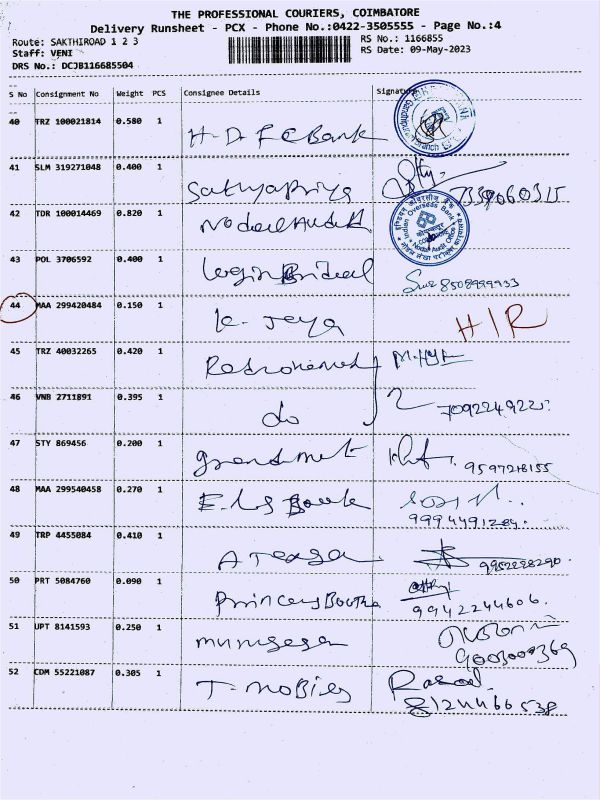 THE PROFESSIONAL COURIERS, COIMBATORE
Delivery Runsheet - PCX - Phone No.:0422-3505555 - Page No.:4
Route: SAKTHIROAD 1 2 3 RS No.: 1166855
Staff: VENI RS Date: 09-May-2023
DRS No.: DCJB116685504
S No Consignment No Weight PCS Consignee Details Signature
40 TRZ 100021814 0.580 1 H.D.F.C Bank
41 SLM 319271048 0.400 1 Sathyapriya
42 TDR 100014469 0.820 1 Nodal Audit
इंडियन ओवरसीज़ बैंक Indian Overseas Bank Nodal Audit Office
43 POL 3706592 0.400 1 Login Bridal 8508999933
44 MAA 299420484 0.150 1 K. Jeya H/R
45 TRZ 40032265 0.420 1
46 VNB 2711891 0.395 1 do
47 STY 869456 0.200 1 9597218155
48 MAA 299540458 0.270 1
49 TRP 4455084 0.410 1
50 PRT 5084760 0.090 1 9942244606.
51 UPT 8141593 0.250 1 murugesan
52 CDM 55221087 0.305 1 T. Mobiles 8124466538